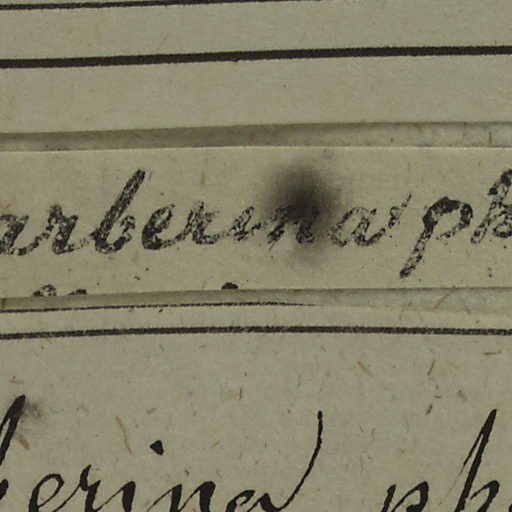 arberina ph
berina ph